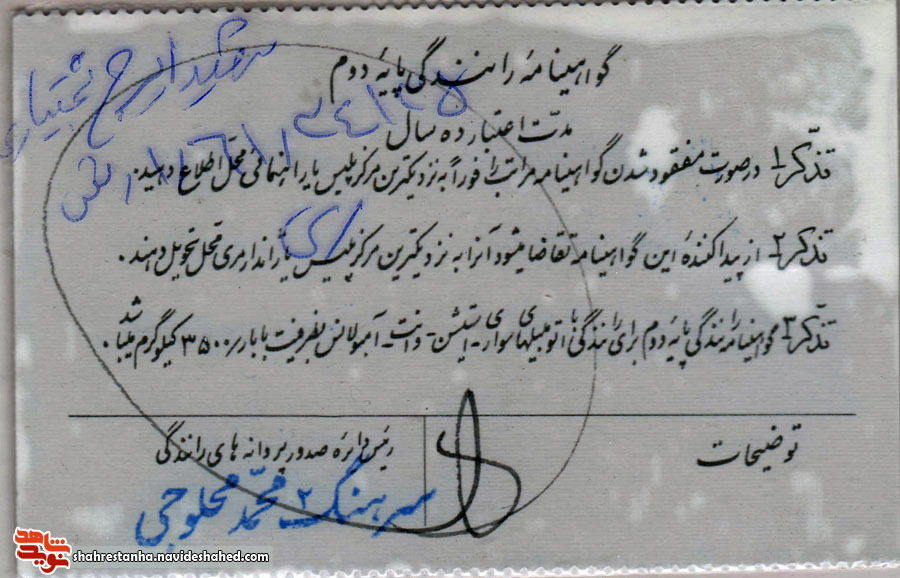 گواهینامهٔ رانندگی پایهٔ دوم
شهید ایرج بختیاری
مدت اعتبار ده سال
تذکر۱- درصورت مفقود شدن گواهینامه مراتب را فوراً به نزدیکترین مرکز پلیس یا راهنمائی محل اطلاع دهید.
تذکر۲- از پیدا کنندهٔ این گواهینامه تقاضا میشود آنرا به نزدیکترین مرکز پلیس یا ژاندارمری محل تحویل دهند.
تذکر۳- گواهینامه رانندگی پایه دوم برای رانندگی با اتومبیلهای سواری- استیشن- وانت- آمبولانس بظرفیت با بار ۳۵۰۰ کیلوگرم میباشد.
توضیحات
رئیس دایره صدور پروانه های رانندگی
سرهنگ ۲ محمد محلوجی
نوید شاهد
shahrestanha.navideshahed.com